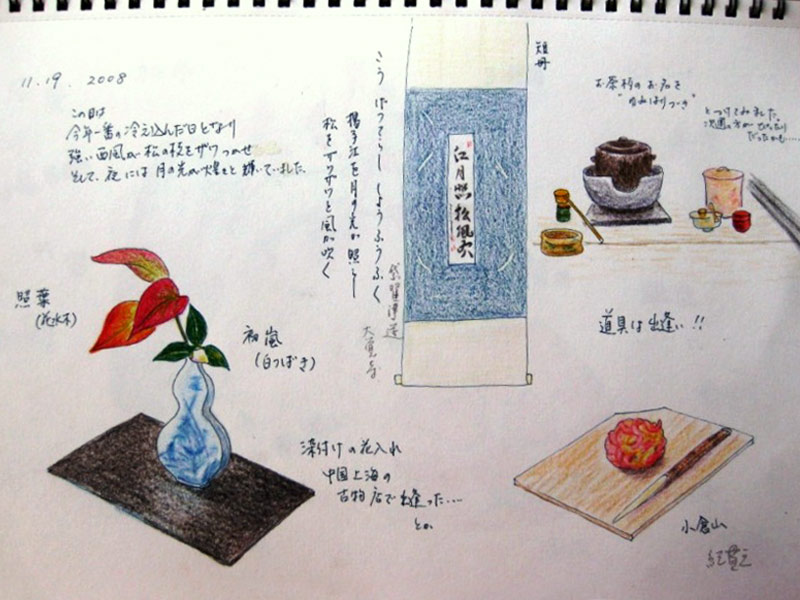 11.19. 2008
この日は
今年一番の冷え込んだ日となり
強い西風が松の枝をザワつかせ
そして、夜には月の光が煌々と輝いていました
こうげつてらし しょうふうふく
揚子江を月の光が照らし
松をザワザワと風が吹く
短冊
江月照松風吹
大覚寺
お茶杓のお名を
とつけてみました
次週の方がぴったり
だったかも....
道具は出逢い!!
照葉
(花水木)
初嵐
(白つばき)
染付けの花入れ
中国上海の
古物店で出逢った....
とか
小倉山
紀貫之